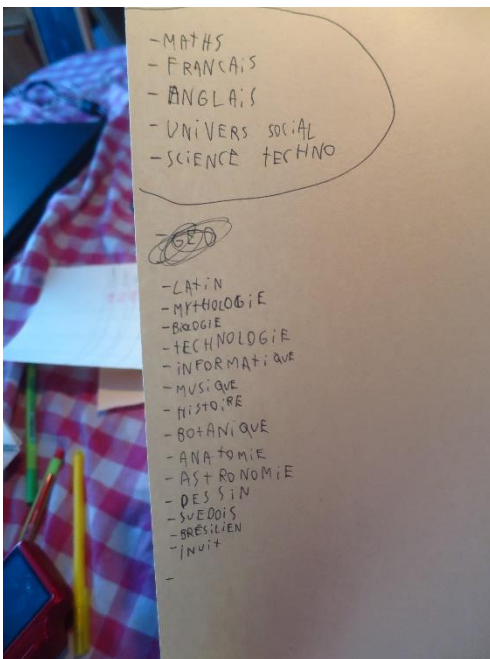 - MATHS
- FRANCAIS
- ANGLAIS
- UNIVERS SOCIAL
- SCIENCE TECHNO
- GÉO
- LATIN
- MYTHOLOGIE
- BIOLOGIE
- TECHNOLOGIE
- INFORMATIQUE
- MUSIQUE
- HISTOIRE
- BOTANIQUE
- ANATOMIE
- ASTRONOMIE
- DESSIN
- SUEDOIS
- BRÉSILIEN
- INUIT
-